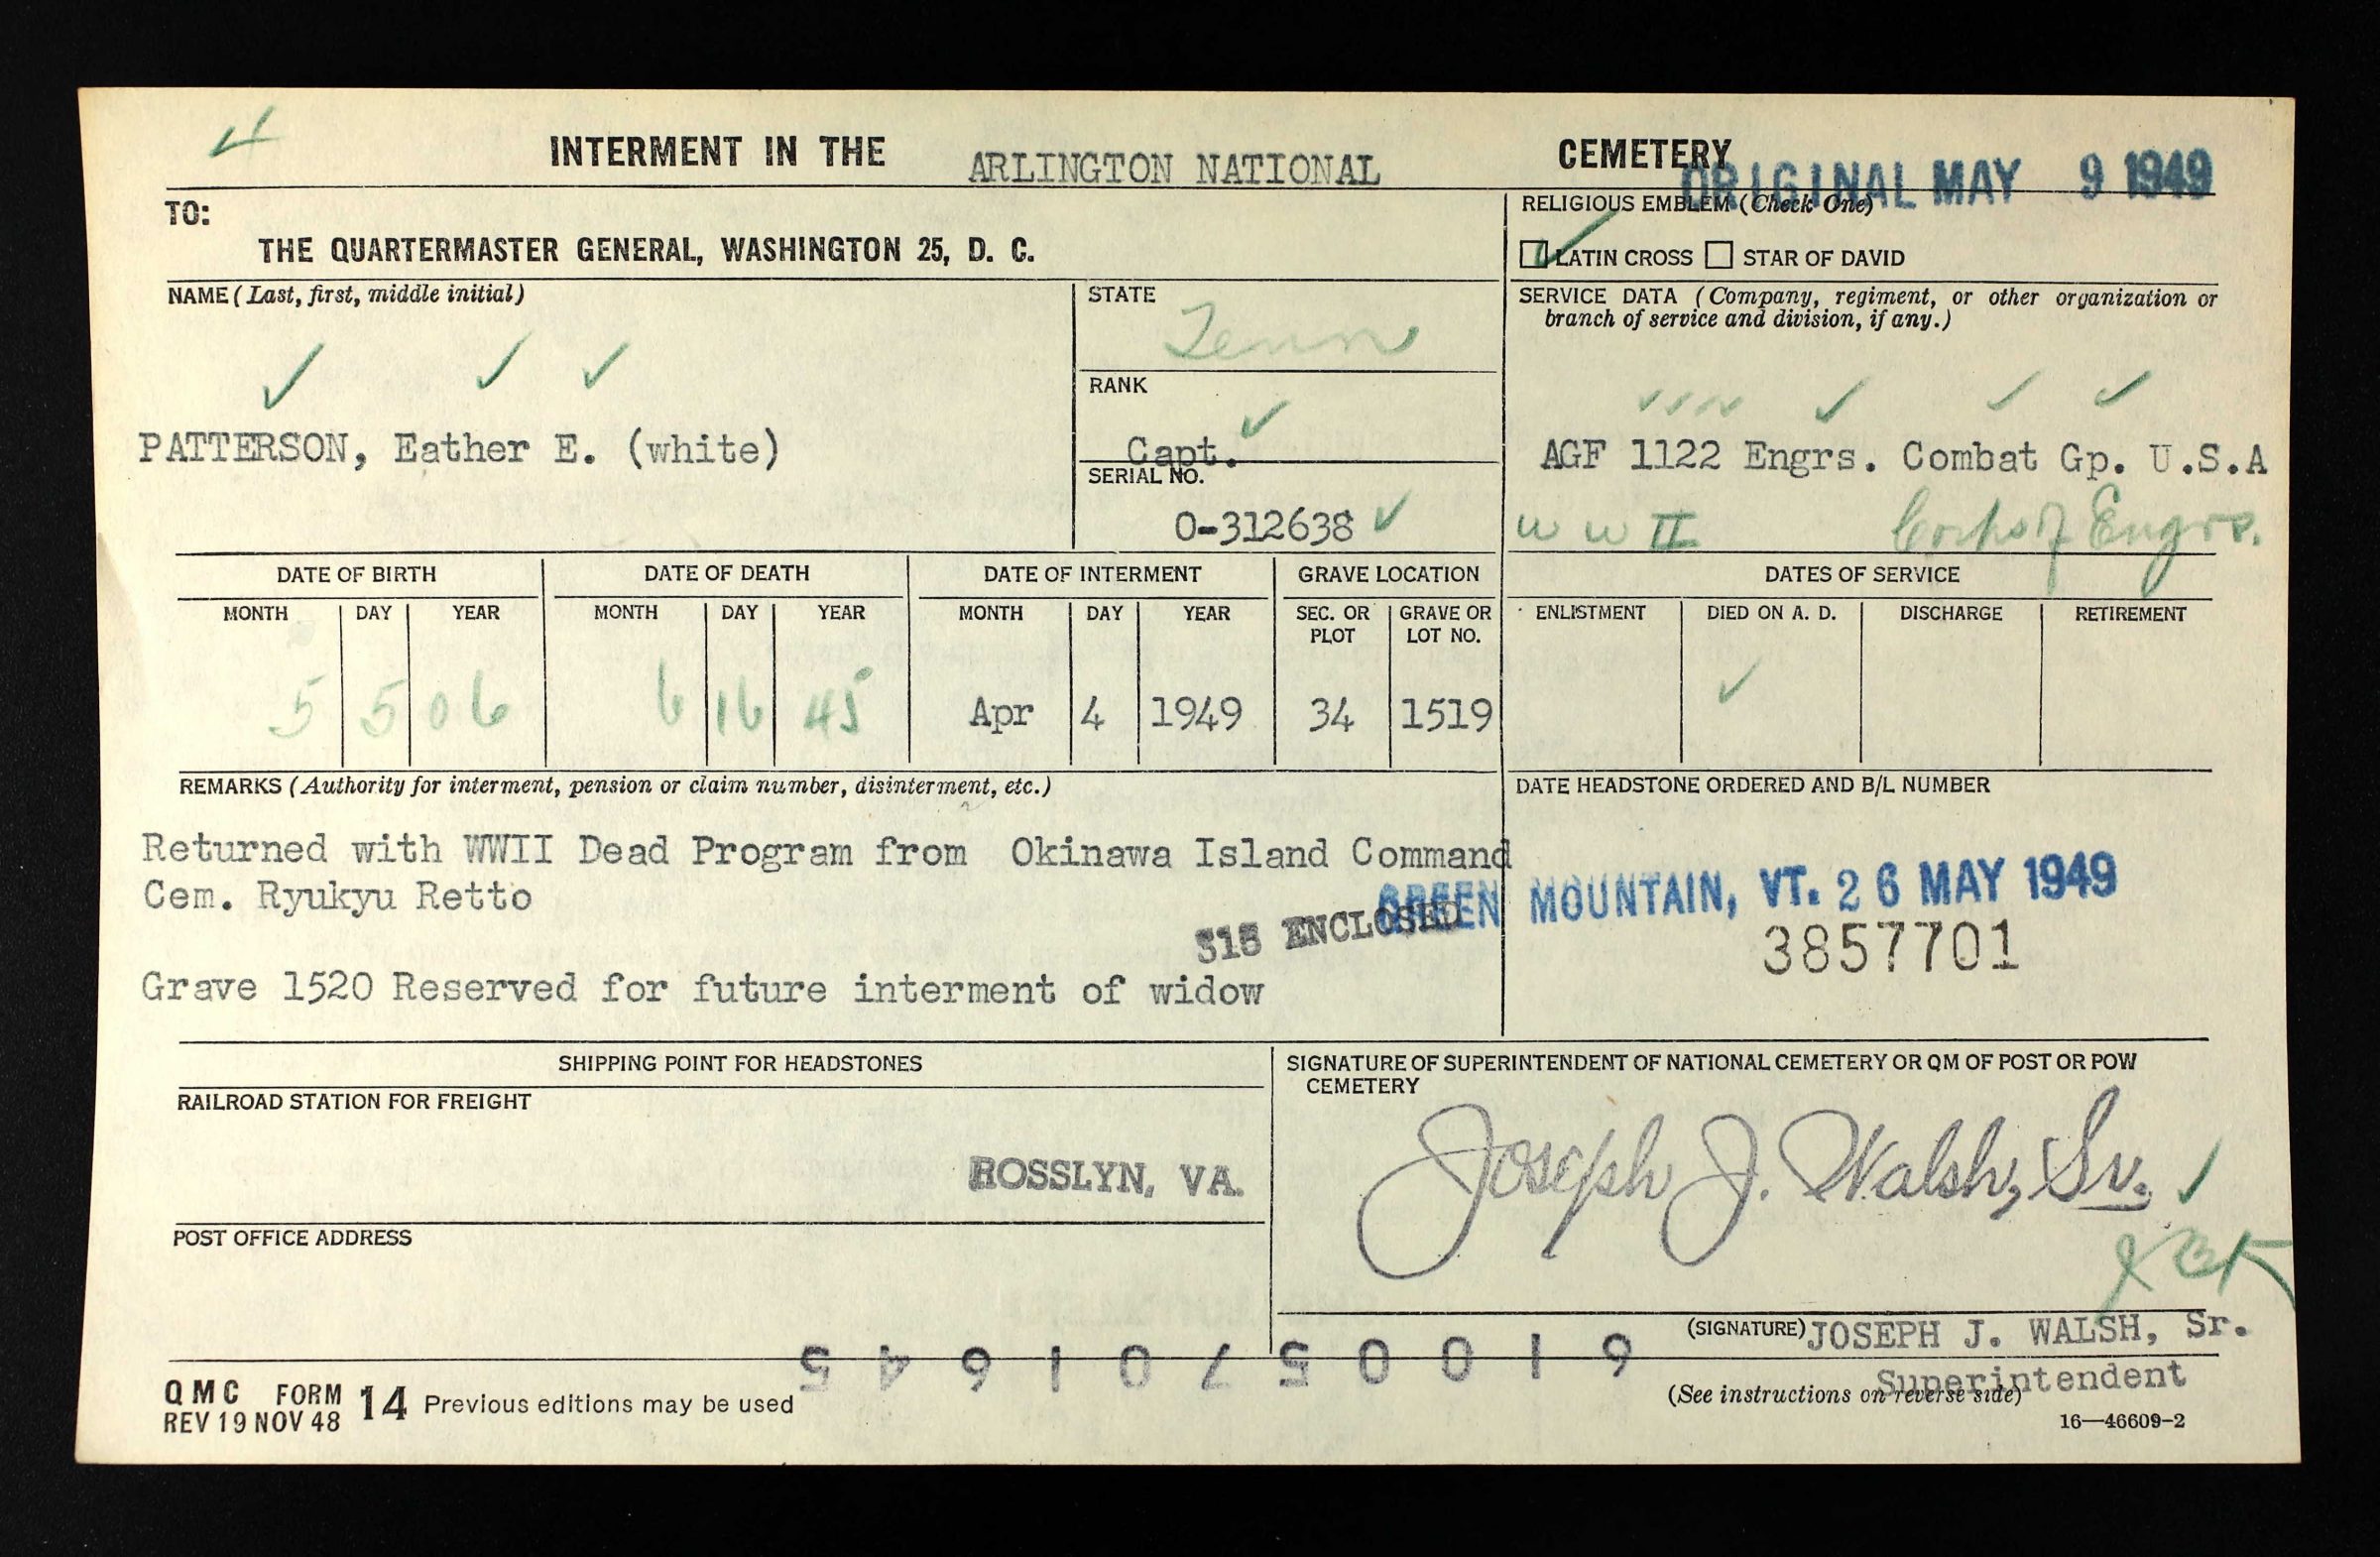 INTERMENT IN THE ARLINGTON NATIONAL CEMETERY
ORIGINAL MAY 9 1949
TO:
THE QUARTERMASTER GENERAL, WASHINGTON 25, D. C.
RELIGIOUS EMBLEM (Check One)
LATIN CROSS STAR OF DAVID
NAME (Last, first, middle initial)
PATTERSON, Eather E. (white)
STATE
Tenn
RANK
Capt.
SERIAL NO.
O-312638
SERVICE DATA (Company, regiment, or other organization or
branch of service and division, if any.)
AGF 1122 Engrs. Combat Gp. U.S.A
W W II Corps of Engrs.
DATE OF BIRTH
MONTH DAY YEAR
5 5 06
DATE OF DEATH
MONTH DAY YEAR
6 16 45
DATE OF INTERMENT
MONTH DAY YEAR
Apr 4 1949
GRAVE LOCATION
SEC. OR PLOT
GRAVE OR LOT NO.
34 1519
DATES OF SERVICE
ENLISTMENT DIED ON A. D. DISCHARGE RETIREMENT
REMARKS (Authority for interment, pension or claim number, disinterment, etc.)
Returned with WWII Dead Program from Okinawa Island Command
Cem. Ryukyu Retto
315 ENCLOSED
Grave 1520 Reserved for future interment of widow
DATE HEADSTONE ORDERED AND B/L NUMBER
GREEN MOUNTAIN, VT. 26 MAY 1949
3857701
SHIPPING POINT FOR HEADSTONES
RAILROAD STATION FOR FREIGHT
ROSSLYN, VA.
POST OFFICE ADDRESS
SIGNATURE OF SUPERINTENDENT OF NATIONAL CEMETERY OR QM OF POST OR POW
CEMETERY
Joseph J. Walsh, Sr.
(SIGNATURE) JOSEPH J. WALSH, Sr.
Superintendent
(See instructions on reverse side)
16—46609-2
QMC FORM 14 Previous editions may be used
REV 19 NOV 48